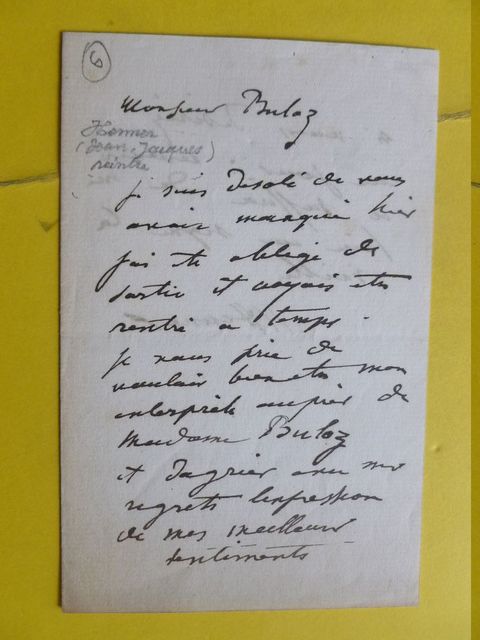 6
Monsieur Buloz
Henner
(Jean-Jacques)
peintre
je suis désolé de vous
avoir manqué hier
j'ai été obligé de
sortir et croyais être
rentré a temps.
Je vous prie de
vouloir bien être mon
interprète auprès de
Madame Buloz
et d'agréer avec mes
regrets l'expression
de mes meilleurs
sentiments